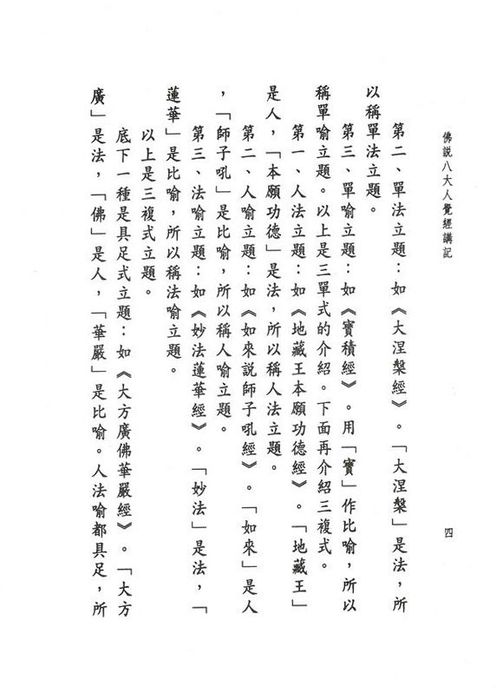 佛說八大人覺經講記
四
第二、單法立題：如《大涅槃經》。「大涅槃」是法，所
以稱單法立題。
第三、單喻立題：如《寶積經》。用「寶」作比喻，所以
稱單喻立題。以上是三單式的介紹。下面再介紹三複式。
第一、人法立題：如《地藏王本願功德經》。「地藏王」
是人，「本願功德」是法，所以稱人法立題。
第二、人喻立題：如《如來說師子吼經》。「如來」是人
，「師子吼」是比喻，所以稱人喻立題。
第三、法喻立題：如《妙法蓮華經》。「妙法」是法，「
蓮華」是比喻，所以稱法喻立題。
以上是三複式立題。
底下一種是具足式立題：如《大方廣佛華嚴經》。「大方
廣」是法，「佛」是人，「華嚴」是比喻。人法喻都具足，所